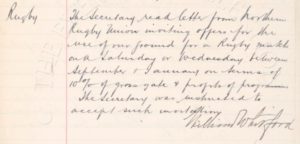 Rugby
The Secretary read letter from Northern
Rugby Union inviting offers for the
use of our ground for a Rugby match
on a Saturday or Wednesday between
September & January on terms of
10% of gross gate & profits of programme
The Secretary was instructed to
accept such
William Whitford